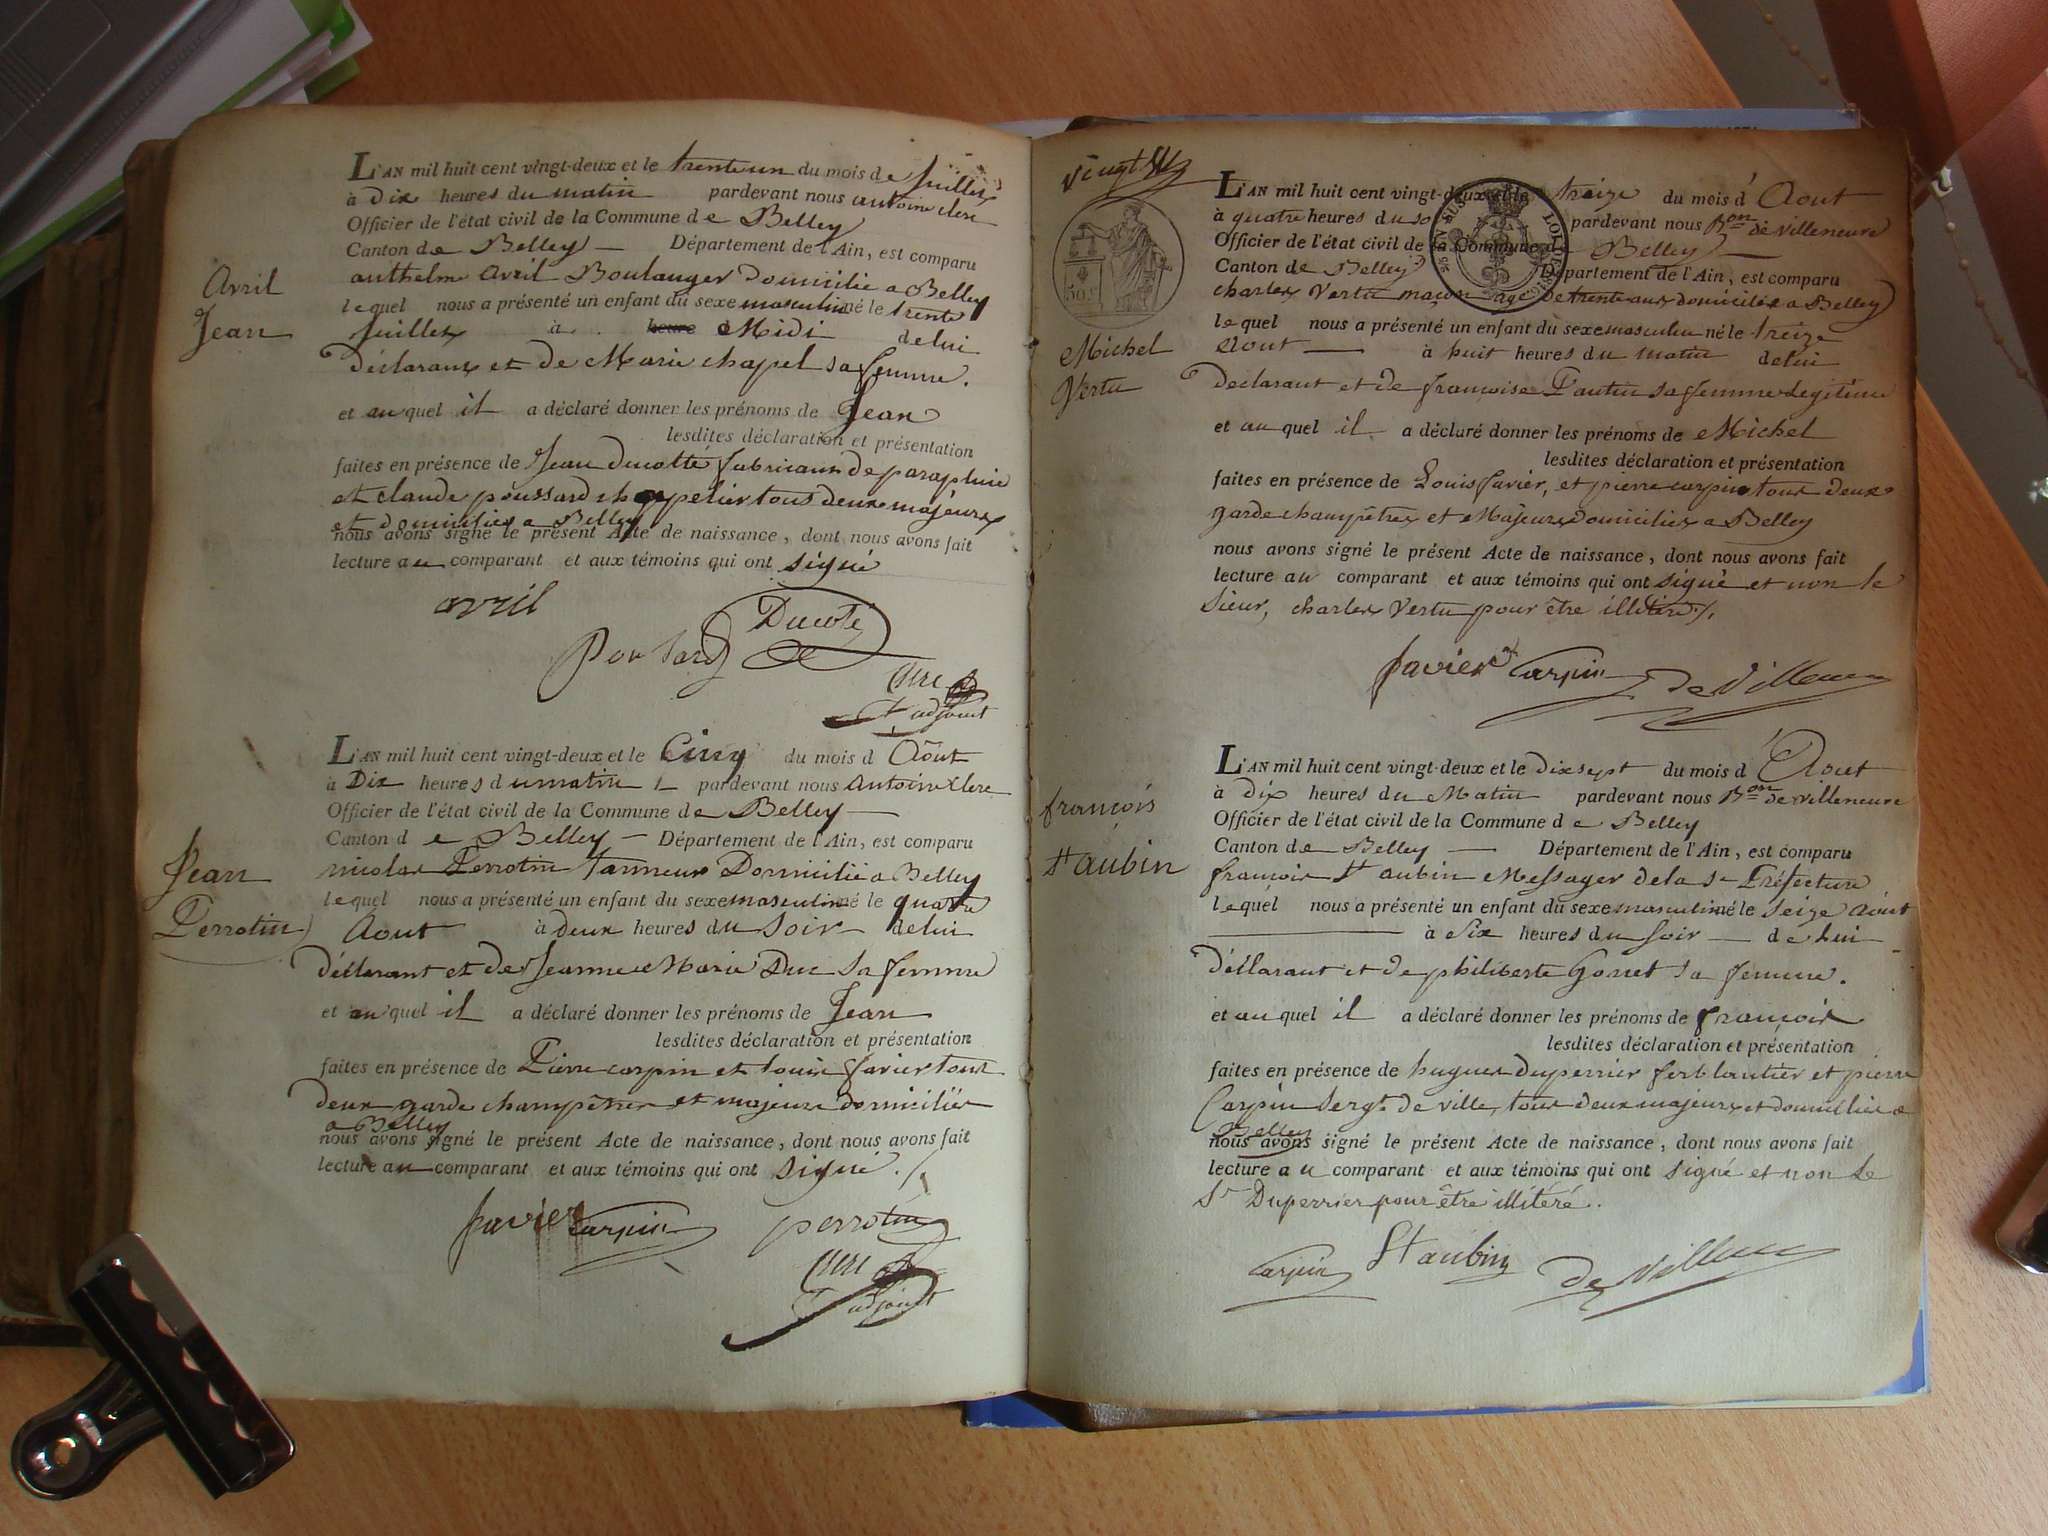 Avril
Jean
L'AN mil huit cent vingt-deux et le trente un du mois de Juillet
à Dix heures du matin pardevant nous antoine clerc
Officier de l'état civil de la Commune de Belley
Canton de Belley Département de l'Ain, est comparu
anthelme Avril Boulanger Domicilié a Belley
lequel nous a présenté un enfant du sexe masculin né le trente
Juillet à heure Midi de lui
Déclarant et de Marie chapel sa femme.
et au quel il a déclaré donner les prénoms de Jean
lesdites déclaration et présentation
faites en présence de Jean Ducotté fabricant de parapluie
et claude poussard chappelier tous deux majeurs
et domiciliés a Belley
nous avons signé le présent Acte de naissance, dont nous avons fait
lecture au comparant et aux témoins qui ont signé
avril
Ducoté
Poussard
Clerc
adjoint
Jean
Perrotin
L'AN mil huit cent vingt-deux et le Cinq du mois d Août
à Dix heures du matin pardevant nous Antoine Clerc
Officier de l'état civil de la Commune de Belley
Canton de Belley Département de l'Ain, est comparu
nicolas Perrotin tanneur Domicilié a Belley
lequel nous a présenté un enfant du sexe masculin né le quatre
Aout à deux heures du Soir de lui
Déclarant et de Jeanne Marie Duc sa femme
et au quel il a déclaré donner les prénoms de Jean
lesdites déclaration et présentation
faites en présence de Pierre carpin et Louis favier tous
deux garde champêtres et majeurs domiciliés
a Belley
nous avons signé le présent Acte de naissance, dont nous avons fait
lecture au comparant et aux témoins qui ont signé ./.
favier carpin perrotin
Clerc
adjoint
vingt
50 c
Michel
Vertu
L'AN mil huit cent vingt-deux et le treize du mois d'Aout
à quatre heures du soir pardevant nous Bon de Villeneuve
Officier de l'état civil de la Commune d Belley
Canton de Belley Département de l'Ain, est comparu
charles Vertu maçon age de trente ans domicilié a Belley
lequel nous a présenté un enfant du sexe masculin né le treize
Aout à huit heures du matin de lui
Declarant et de françoise Pautin sa femme Legitime
et au quel il a déclaré donner les prénoms de Michel
lesdites déclaration et présentation
faites en présence de Louis favier, et pierre carpin tous deux
garde champêtres et Majeurs domiciliés a Belley
nous avons signé le présent Acte de naissance, dont nous avons fait
lecture au comparant et aux témoins qui ont signé et non le
Sieur, charles Vertu pour être illitiré ./.
favier carpin de Villeneuve
françois
St aubin
L'AN mil huit cent vingt-deux et le dix sept du mois d'Aout
à dix heures du Matin pardevant nous Bon de Villeneuve
Officier de l'état civil de la Commune de Belley
Canton de Belley Département de l'Ain, est comparu
françois St aubin Messager de la Se Préfecture
lequel nous a présenté un enfant du sexe masculin né le Seize Aout
à Six heures du soir de Lui
Déclarant et de philiberte Gonet sa femme.
et au quel il a déclaré donner les prénoms de françois
lesdites déclaration et présentation
faites en présence de hugues Duperrier ferblantier et pierre
Carpin Sergt. de ville, tous deux majeurs et domiciliés a
Belley
nous avons signé le présent Acte de naissance, dont nous avons fait
lecture au comparant et aux témoins qui ont signé et non le
Sr Duperrier pour être illitéré.
carpin St aubin de Villeneuve